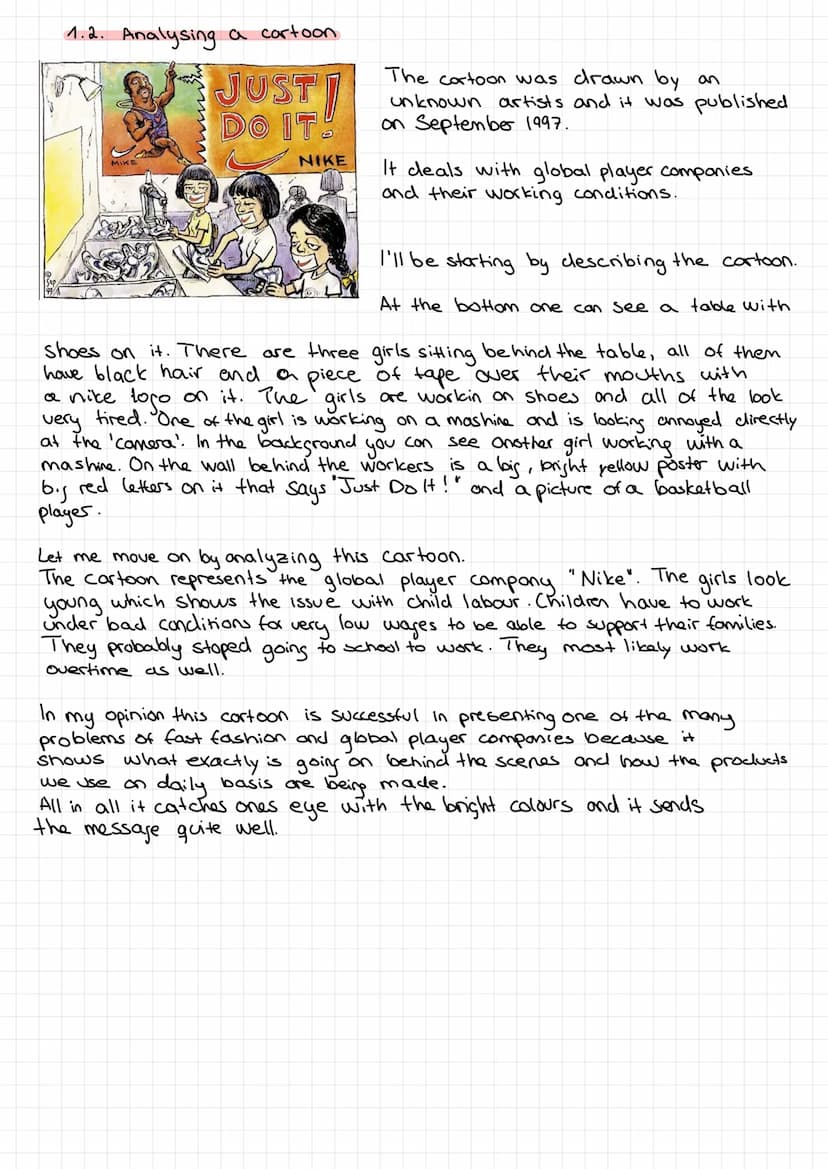 1.2. Analysing a cartoon
JUST
DO IT!
MIKE
NIKE
Sep
97
The cartoon was drawn by an
unknown artists and it was published
on September 1997.
It deals with global player companies
and their working conditions.
I'll be starting by describing the cartoon.
At the bottom one can see a table with
shoes on it. There are three girls sitting behind the table, all of them
have black hair and a piece of tape over their mouths with
a nike logo on it. The girls are workin on shoes and all of the look
very tired. One of the girl is working on a mashine and is looking annoyed directly
at the 'camera'. In the background you can see another girl working with a
mashine. On the wall behind the workers is a big, bright yellow poster with
big red letters on it that says "Just Do It!" and a picture of a basketball
player.
Let me move on by analyzing this cartoon.
The cartoon represents the global player company "Nike". The girls look
young which shows the issue with child labour. Children have to work
under bad conditions for very low wages to be able to support their families.
They probably stoped going to school to work. They most likely work
overtime as well.
In my opinion this cartoon is successful in presenting one of the many
problems of fast fashion and global player companies because it
shows what exactly is going on behind the scenes and how the products
we use on daily basis are being made.
All in all it catches ones eye with the bright colours and it sends
the message quite well.